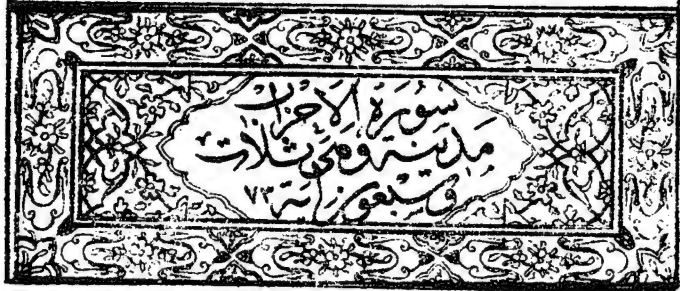 سورة الأحزاب
مدنية وهي ثلاث
وسبعون آية ٧٣